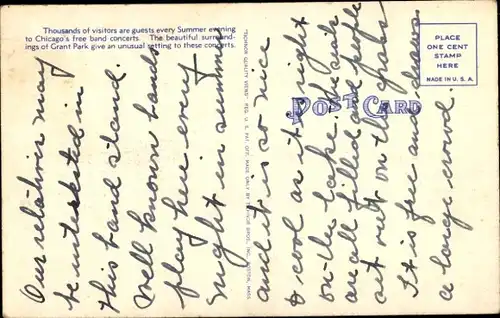 Thousands of visitors are guests every Summer evening
to Chicago's free band concerts. The beautiful surround-
ings of Grant Park give an unusual setting to these concerts.
"TICHNOR QUALITY VIEWS" REG. U. S. PAT. OFF. MADE ONLY BY TICHNOR BROS., INC., BOSTON, MASS.
POST CARD
PLACE
ONE CENT
STAMP
HERE
MADE IN U. S. A.
Our relatives may
be interested in
this band stand.
Well known bands
play here every
night in summer
and it is so nice
& cool as it is right
on the lake. The seats
are all filled and people
sit out on the grass
It is free and draws
a large crowd.